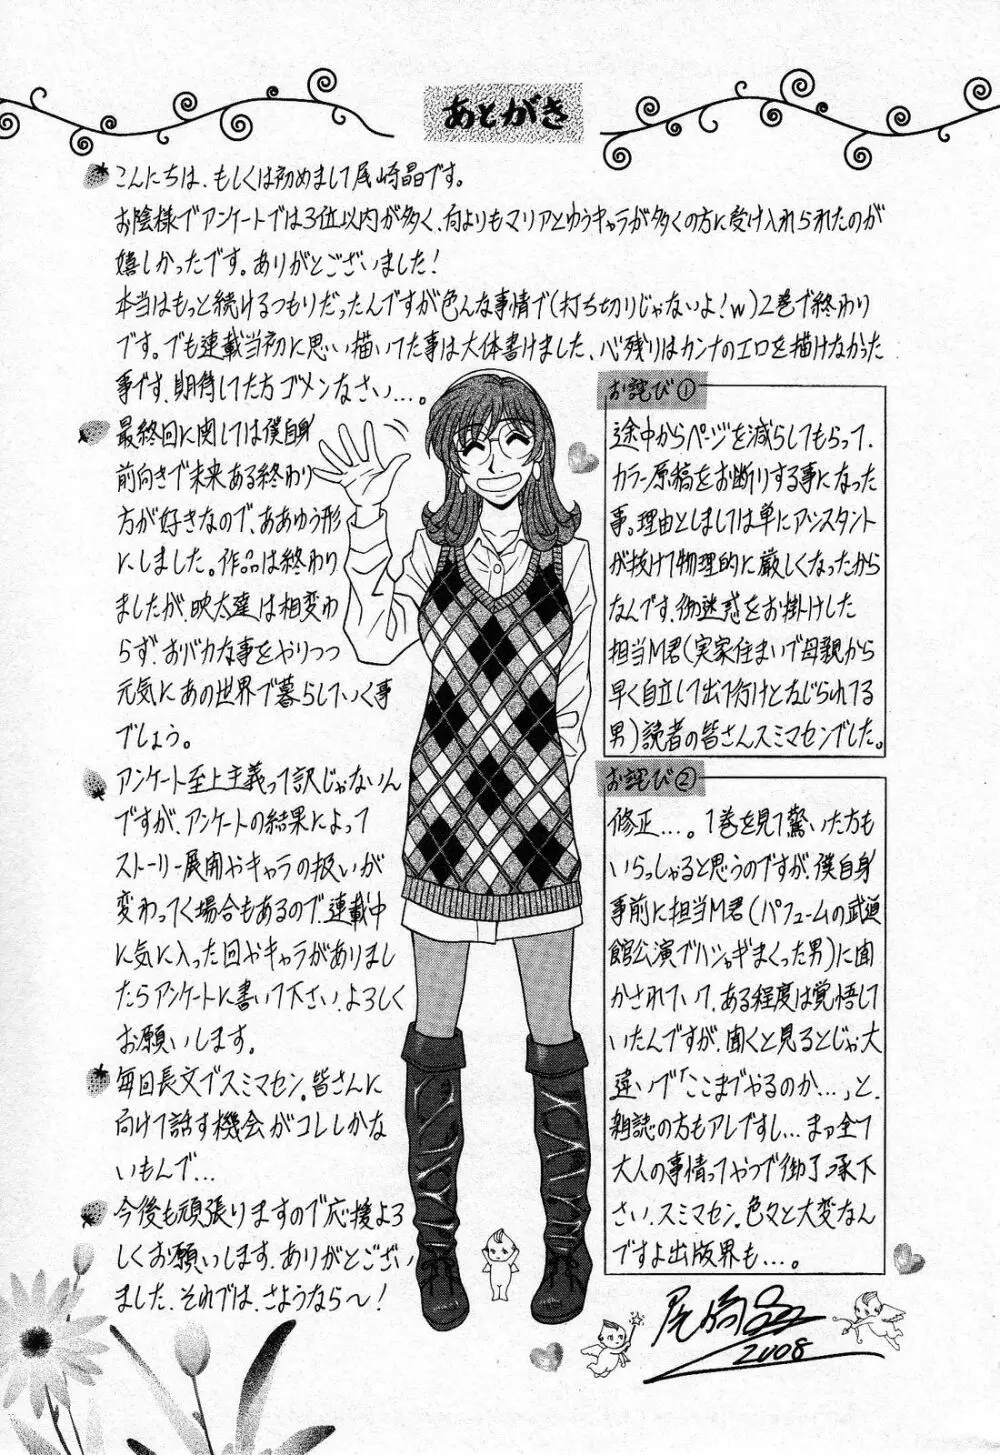 あとがき
こんにちは、もしくは初めまして尾崎晶です。
お陰様でアンケートでは3位以内が多く、何よりもマリアとゆうキャラが多くの方に受け入れられたのが
嬉しかったです。ありがとうございました！
本当はもっと続けるつもりだったんですが色んな事情で(打ち切りじゃないよ！w)2巻で終わり
です。でも連載当初に思い描いてた事は大体書けました、心残りはカンナのエロを描けなかった
事です、期待してた方ゴメンなさい…。
最終回に関しては僕自身
前向きで未来ある終わり
方が好きなので、ああゆう形
にしました。作品は終わり
ましたが、映太達は相変わ
らず、おバカな事をやりつつ
元気にあの世界で暮らしていく事
でしょう。
アンケート至上主義って訳じゃないん
ですが、アンケートの結果によって
ストーリー展開やキャラの扱いが
変わってく場合もあるので、連載中
に気に入った回やキャラがありまし
たらアンケートに書いて下さい、よろしく
お願いします。
毎回長文でスミマセン。皆さんに
向けて話す機会がコレしかな
いもんで…
今後も頑張りますので応援よろ
しくお願いします、ありがとうござい
ました、それでは、さようなら〜！
お詫び①
途中からページを減らしてもらって、
カラー原稿をお断りする事になった
事。理由としましては単にアシスタント
が抜けて物理的に厳しくなったから
なんです、御迷惑をお掛けした
担当M君(実家住まいで母親から
早く自立して出て行けとなじられてる
男)読者の皆さんスミマセンでした。
お詫び②
修正…。1巻を見て驚いた方も
いらっしゃると思うのですが、僕自身
事前に担当M君(パフュームの武道
館公演でハシャギまくった男)に聞
かされていて、ある程度は覚悟して
いたんですが、聞くと見るとじゃ大
違いで「ここまでやるのか…」と、
雑誌の方もアレですし…まァ全て
大人の事情ってやつで御了承下
さい、スミマセン。色々と大変なん
ですよ出版界も…。
尾崎晶
2008